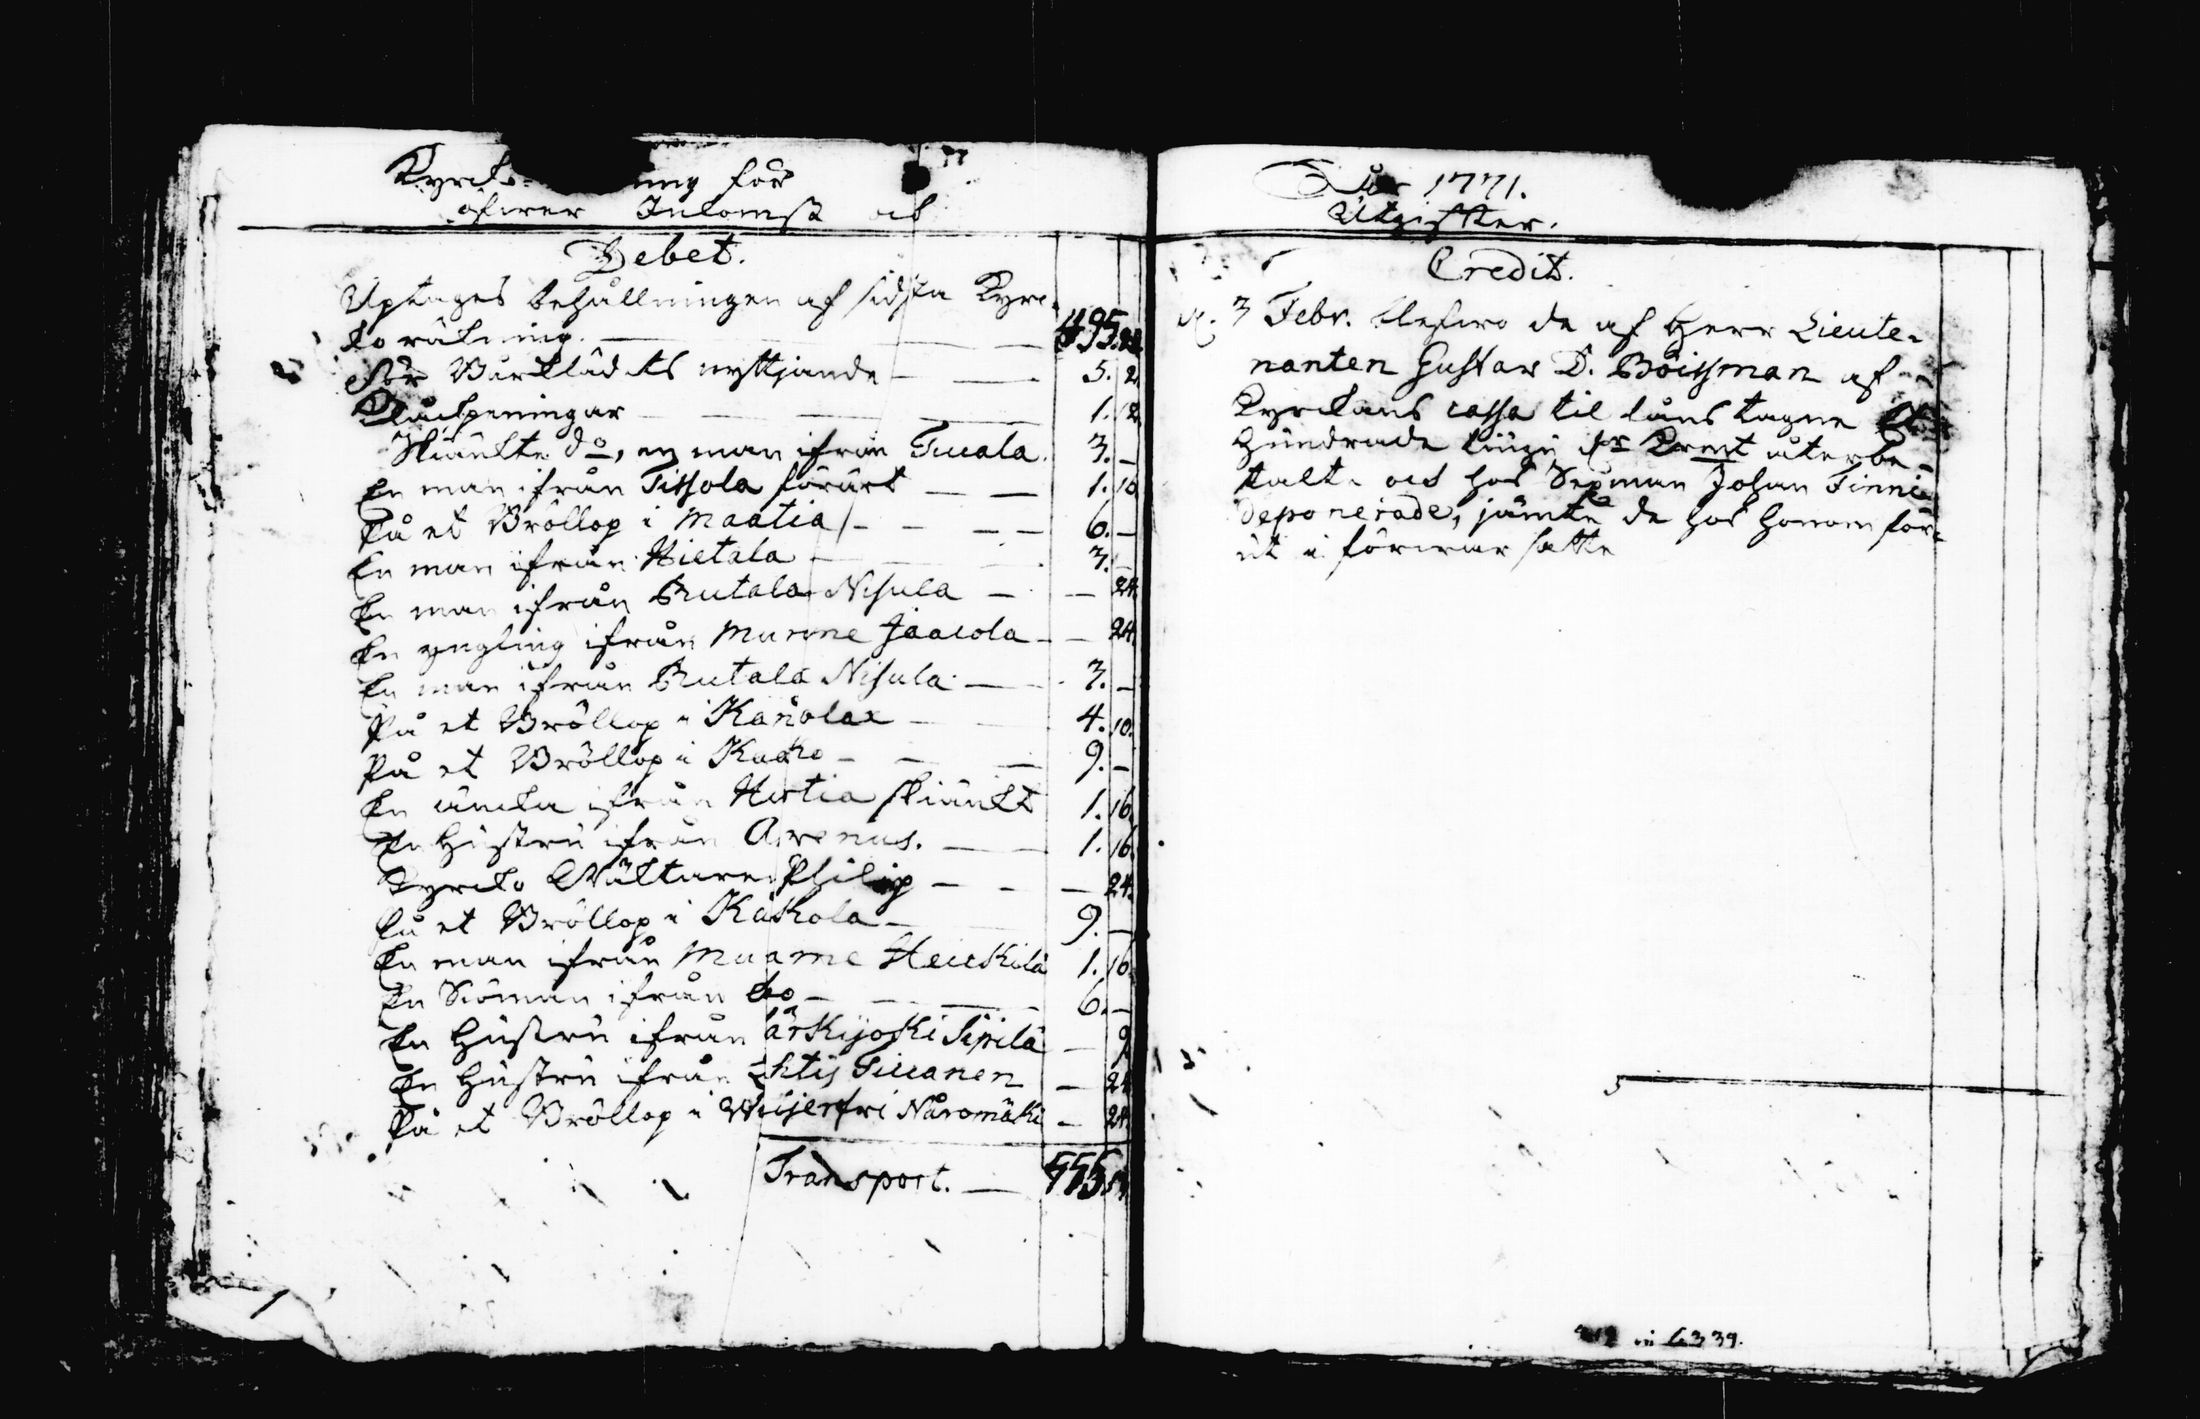 Kyrcko ning för
öfwer Inkomst och
Debet.
Uptages behållningen af sidsta Kyrc-
ko räkning. — 495.
För Bårklädets nyttjande — 5. 2.
Klåckpeningar — 1. 12.
Skänkte do, en man ifrån Tucala. 3. —
En man ifrån Tissola förärt — 1. 10
På et Bröllop i Maatia — 6. —
En man ifrån Hietala — 3. —
En man ifrån Rutala Nisula — — 24.
En yngling ifrån Murine Jaacola — — 24.
En man ifrån Rutala Nisula — 3. —
På et Bröllop i Kañolax — 4. 10.
På et Bröllop i Kacko — 9. —
En äncka ifrån Hertia skiänkt 1. 16.
En Hustru ifrån Arenus. — 1. 16.
Kyrcko Wäcktaren Philip — — 24.
På et Bröllop i Kackola — 9. —
En man ifrån Muarne Heickilä 1. 16.
En Siöman ifrån — 6. —
En Hustru ifrån Särkijoki Sipilä — 9
En Hustru ifrån Ticcanen — 24
På et Bröllop i Näromäki — 24.
Transport. — 555
År 1771.
Utgiffter.
Credit.
d. 3 Febr. blefwo de af Herr Lieute-
nanten Gustav D. Böisman af
Kyrckans cassa til låns tagne
Hundrade tiugu dr Kmt återbe-
talte och hos Sexman Johan Finni
deponerade, jämte de hos honom för-
ut i förwar satte
in 6339.